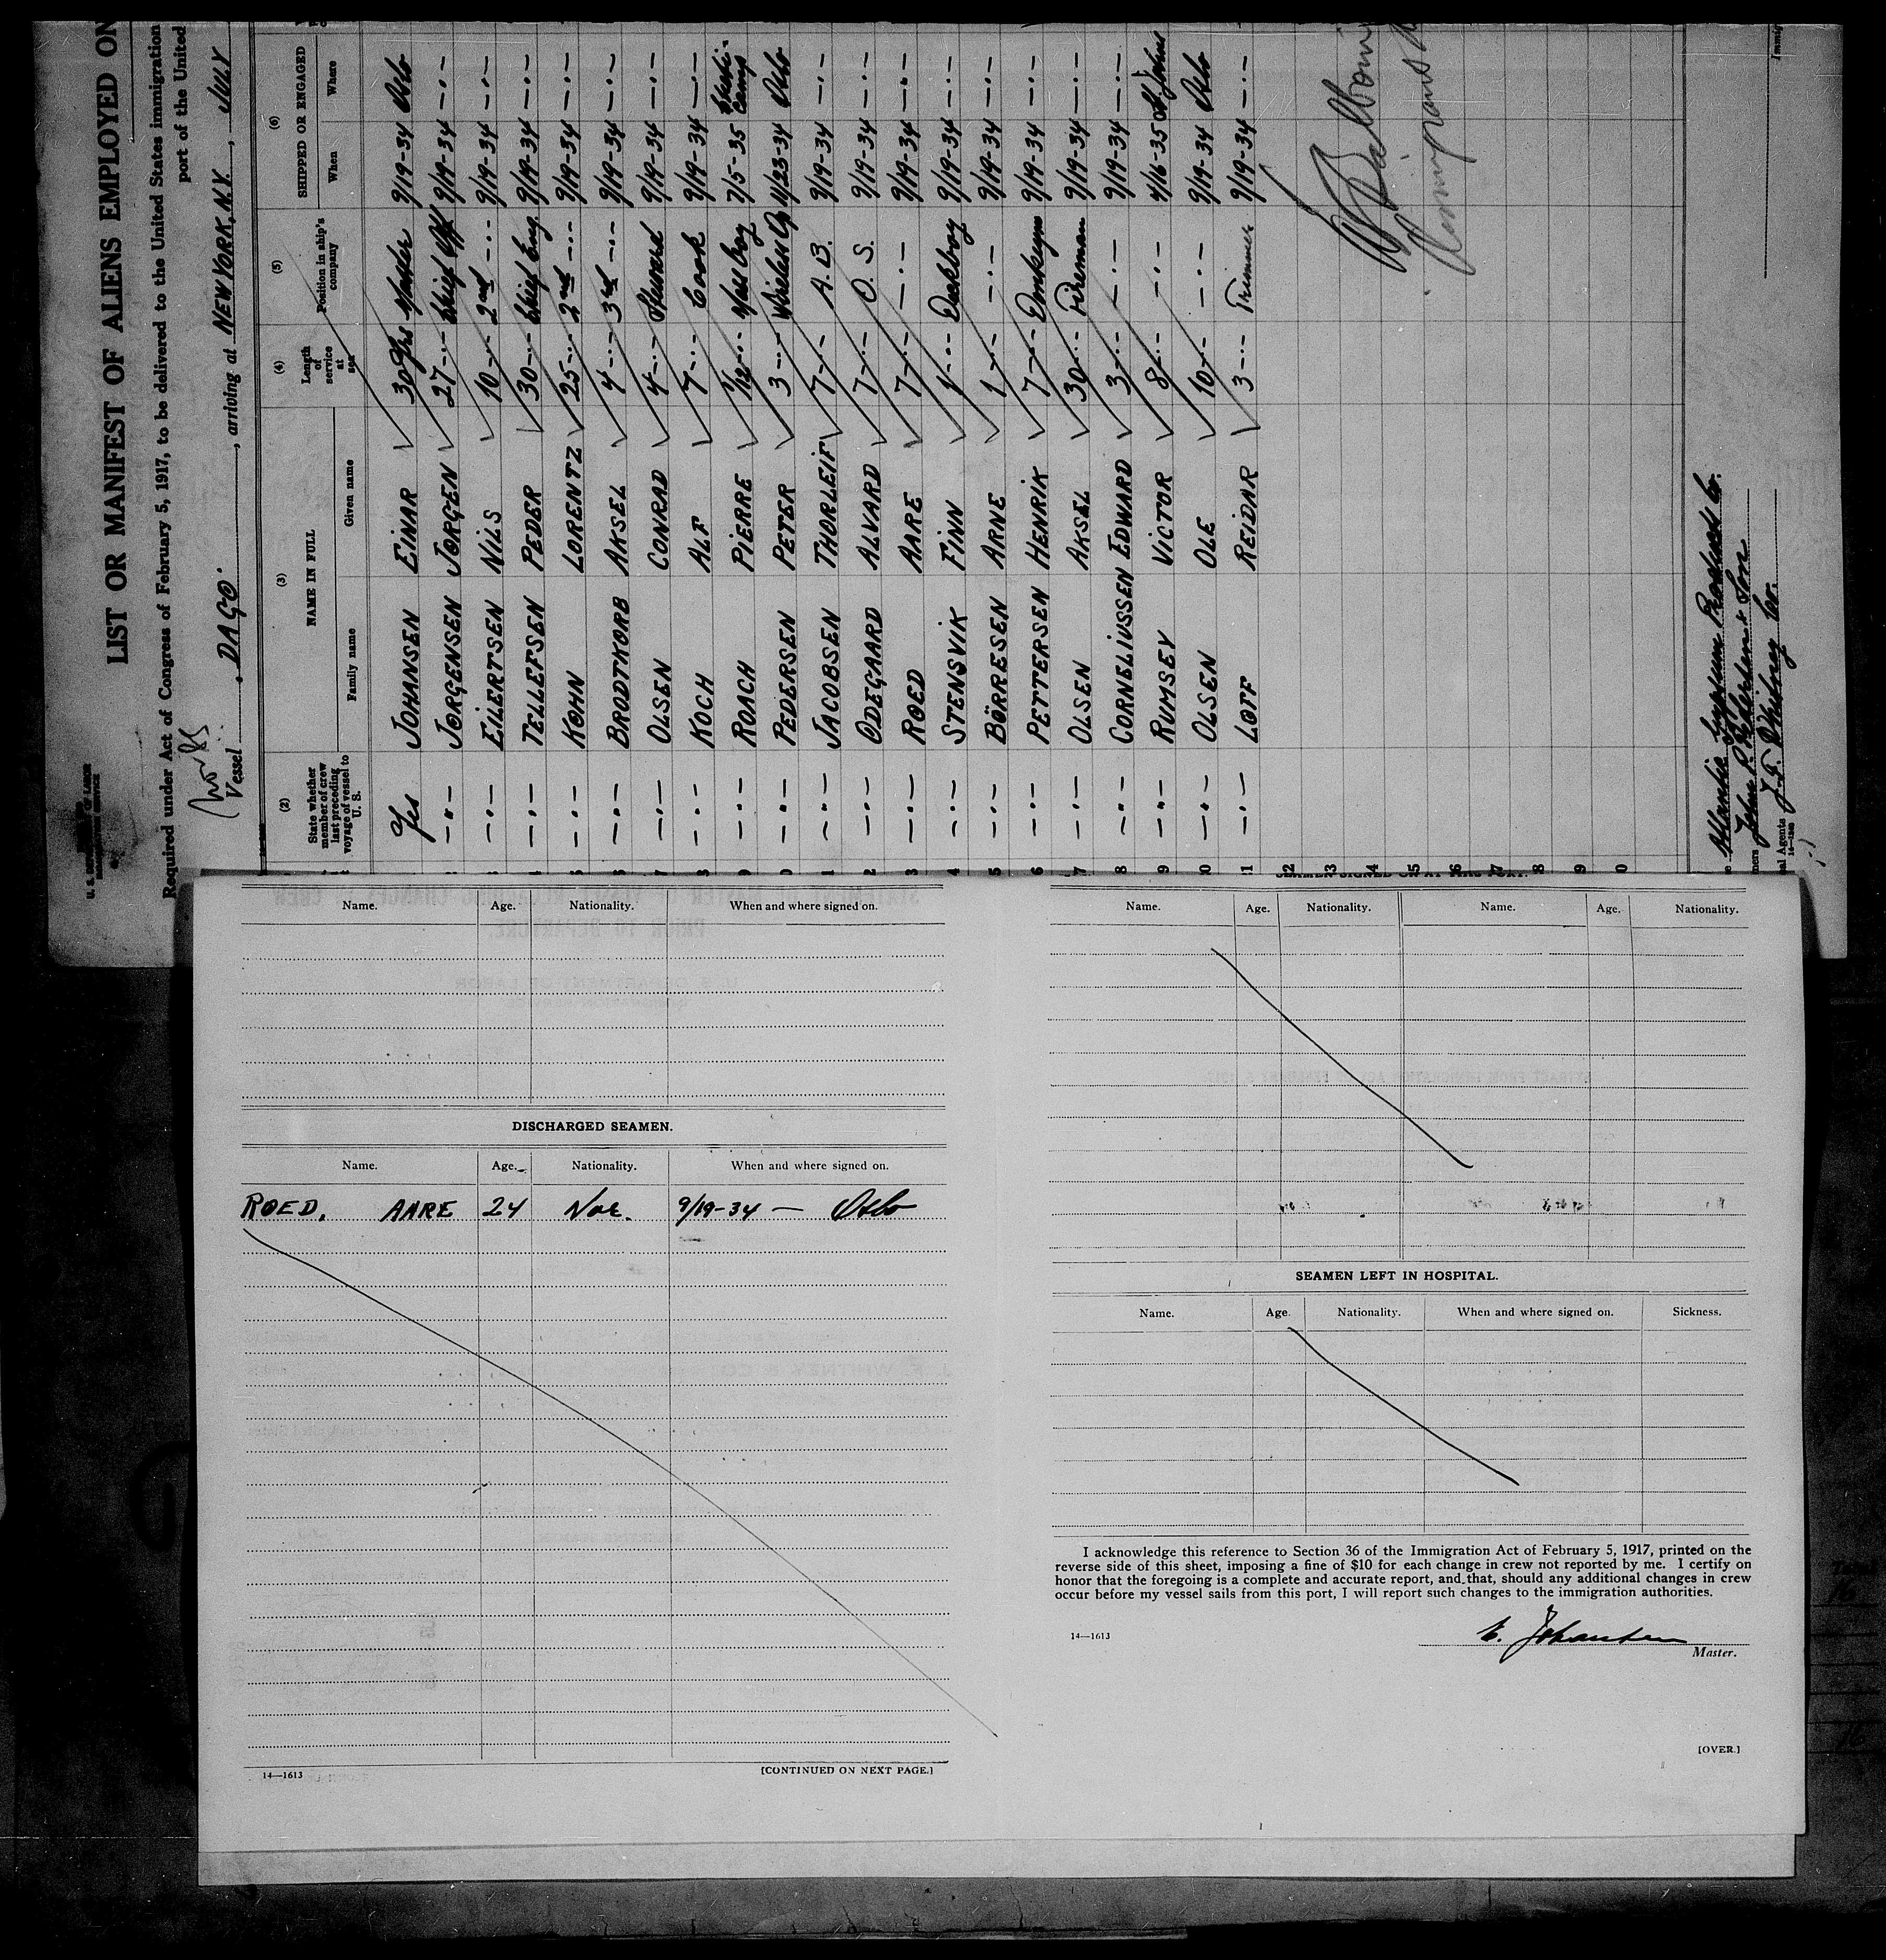 LIST OR MANIFEST OF ALIENS EMPLOYED ON
Required under Act of Congress of February 5, 1917, to be delivered to the United States immigration
port of the United
Vessel DAGO, arriving at NEW YORK, N.Y., JULY
(2) (3) (4) (5) (6)
State whether member of crew last preceding voyage of vessel to U. S. NAME IN FULL Length of service at sea Position in ship's company SHIPPED OR ENGAGED
Family name Given name When Where
Yes JOHANSEN EINAR 30 Yrs Master 9/19-34 Oslo
-"- JORGENSEN JORGEN 27 -"- Chief Off 9/19-34 -"-
-"- EILERTSEN NILS 10 -"- 2nd -"- 9/19-34 -"-
-"- TELLEFSEN PEDER 30 -"- Chief Eng. 9/19-34 -"-
-"- KOHN LORENTZ 25 -"- 2nd -"- 9/19-34 -"-
-"- BRODTKORB AKSEL 4 -"- 3rd -"- 9/19-34 -"-
-"- OLSEN CONRAD 4 -"- Steward 9/19-34 -"-
-"- KOCH ALF 7 -"- Cook 9/19-34 -"-
-"- ROACH PIERRE 1/12 -"- Mess boy 7/5-35
-"- PEDERSEN PETER 3 -"- Wireless Op 11/23-34 Oslo
-"- JACOBSEN THORLEIF 7 -"- A.B. 9/19-34 -"-
-"- ODEGAARD ALVARD 7 -"- O.S. 9/19-34 -"-
-"- ROED AARE 7 -"- -"- 9/19-34 -"-
-"- STENSVIK FINN 1 -"- Deckboy 9/19-34 -"-
-"- BÖRRESEN ARNE 1 -"- -"- 9/19-34 -"-
-"- PETTERSEN HENRIK 7 -"- Donkeym 9/19-34 -"-
-"- OLSEN AKSEL 30 -"- Fireman 9/19-34 -"-
-"- CORNELIUSSEN EDWARD 3 -"- -"- 9/19-34 -"-
-"- RUMSEY VICTOR 8 -"- -"- 4/16-35 St. Johns
-"- OLSEN OLE 10 -"- -"- 9/19-34 Oslo
-"- LOTF REIDAR 3 -"- Trimmer 9/19-34 -"-
Atlantic Gypsum Products Co.
al Agents J.F. Whitney Co.
14—1240
Name. Age. Nationality. When and where signed on.
DISCHARGED SEAMEN.
Name. Age. Nationality. When and where signed on.
ROED, AARE 24 Nor. 9/19-34 — Oslo
14—1613 [CONTINUED ON NEXT PAGE.]
Name. Age. Nationality. Name. Age. Nationality.
SEAMEN LEFT IN HOSPITAL.
Name. Age. Nationality. When and where signed on. Sickness.
I acknowledge this reference to Section 36 of the Immigration Act of February 5, 1917, printed on the
reverse side of this sheet, imposing a fine of $10 for each change in crew not reported by me. I certify on
honor that the foregoing is a complete and accurate report, and that, should any additional changes in crew
occur before my vessel sails from this port, I will report such changes to the immigration authorities.
14—1613
E. Johansen
Master.
[OVER.]